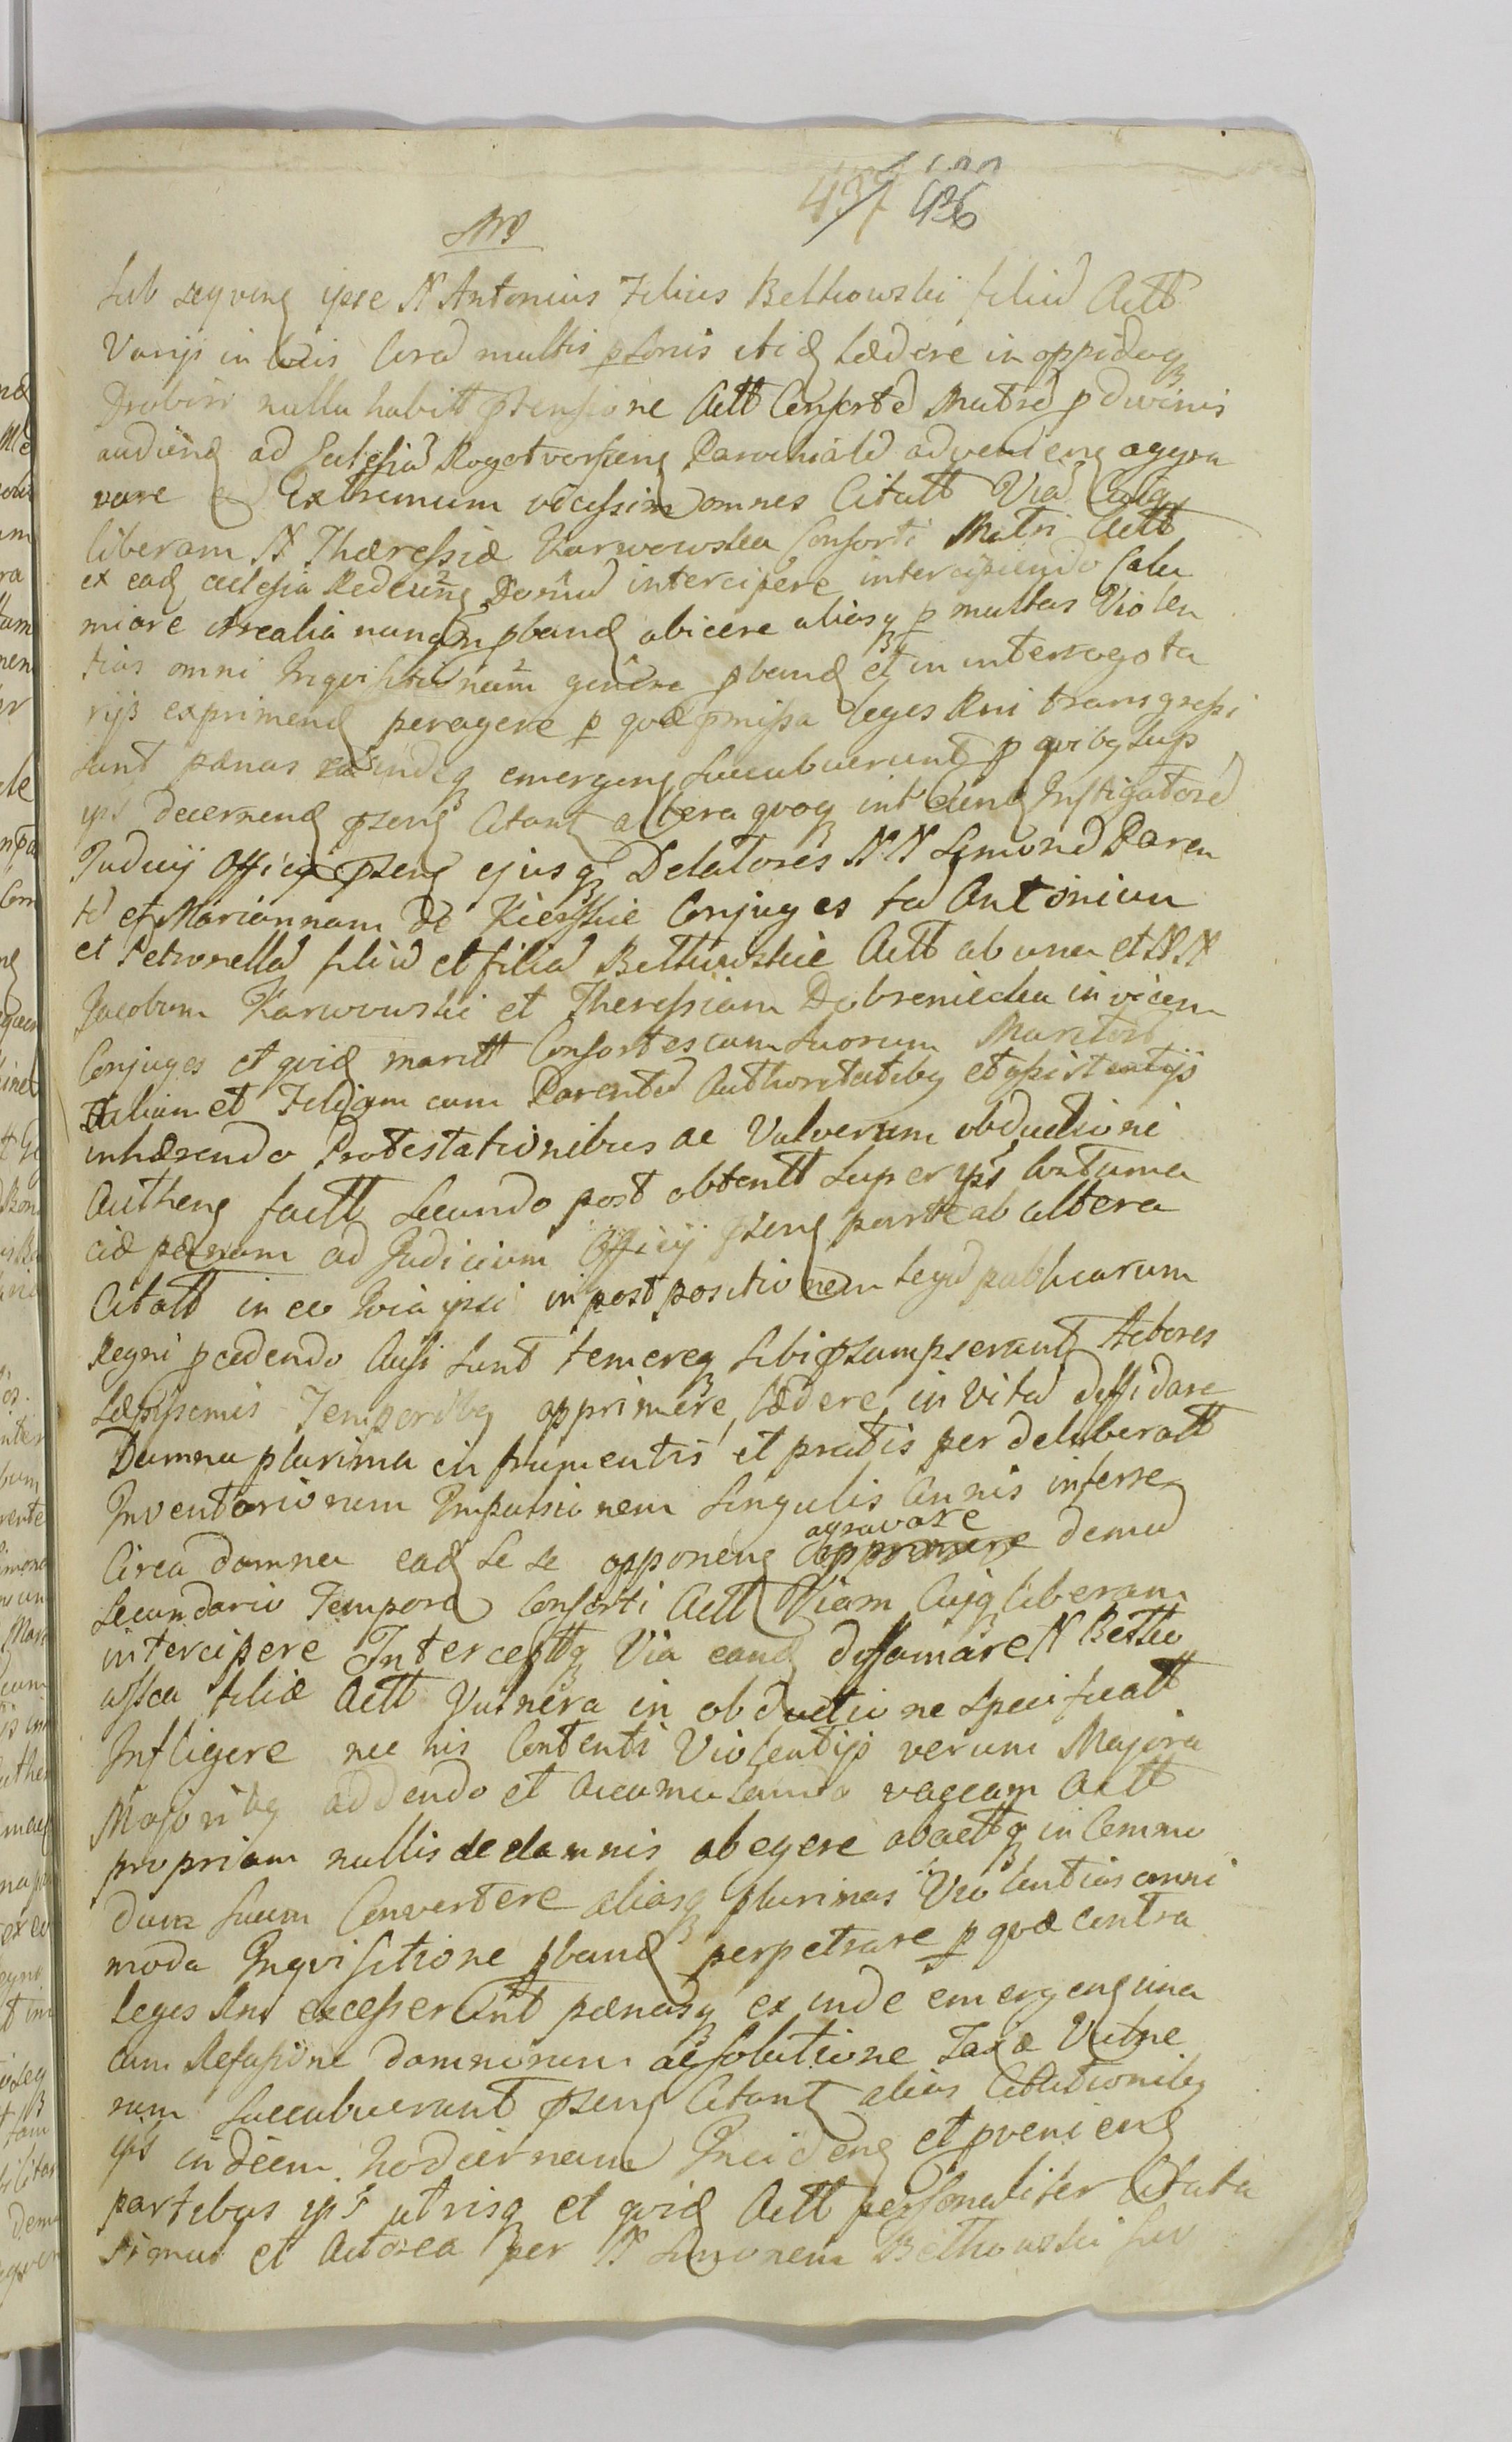 437 436
Sub seqven ipse N Antonius Filius Bełkowski filiu Actt
Varijs in locis Cora multis psonis etiã lædere in oppidoq
Drobin nulla habitt pensione Actt Consorte Matre p divinis
audiend ad Eclesia Rogotvorsien Parochiale advenien aggra
vare & Extremum vicessim omnes Citatt Via Cuiq
liberam N Theressiæ Karwowska Consorti Matri Actt
ex ead eclesia Redeun Domu intercipere intercipiendo Calu
miare et realia nunqm pband obicere aliasq p multas Violen
tias omni Inqvisitionum genere pband et in interrogato
rijs exprimend peragere p qvæ pmissa leges Rni transgressi
sunt pænas exindeq emergen succubuerunt p qvibq sup
ips decernend psens Citant altera qvoq int eund Instigatore
Judicij Officij psens ejusq Delatores N N Simone Paren
te et Mariannam De Kierskie Conjuges ta Antonium
et Petronella filiu et filia Bełkowskie Actt ab una et N N
Jacobum Karwowski et Theressiam Dobreniecka invicem
Conjuges et qvid maritt Consortes cum suorum Maritor
Filium et Filiam cum Parentu Authoritatibq et assistentijs
inhærendo Protestationibus ac Vulnerum obductioni
Authen factt Secundo post obtentt super ips Contuma
ciæ pænam ad Judicium Officij psens parte ab altera
Citatt in eo Qvia ipsi in postpositionem legu publicarum
Regni pcedendo Ausi sunt temereq sibi psumpserunt Actores
sæpissimis Temporibq opprimere lædere in vita diffidare
Damna plurima in frumentis et pratis per deliberatt
Inventariorum Impulsionem Singulis Annis inferre
Circa damna ead se se opponen aggravare opprimere demu
Secundario Tempore Consorti Actt Viam Cuiq liberam
intercipere Interceptaq Via eand diffamare N Bełko
wska filiæ Actt Vulnera in obductione specificatt
Infligere nec his Contenti Violentijs verum Majora
Majoribq addendo et Accumulando vaccam Actt
propriam nullis de damnis abegere abacttq in Commo
dum suum Convertere aliasq plurimas Violentias omni
moda Inqvisitione pband perpetrare p qvæ contra
leges Rni excesserunt pænasq exinde emergen una
cum Refusione damnorum ac solutione Taxæ Vulne
rum succubuerunt psens Citant alias Citationibq
ips in diem hodiernam Inciden et pvenien
partibus ips utrisq et qvid Actt personaliter Citata
simul et Actorea per N Simonem Bełkowski suo